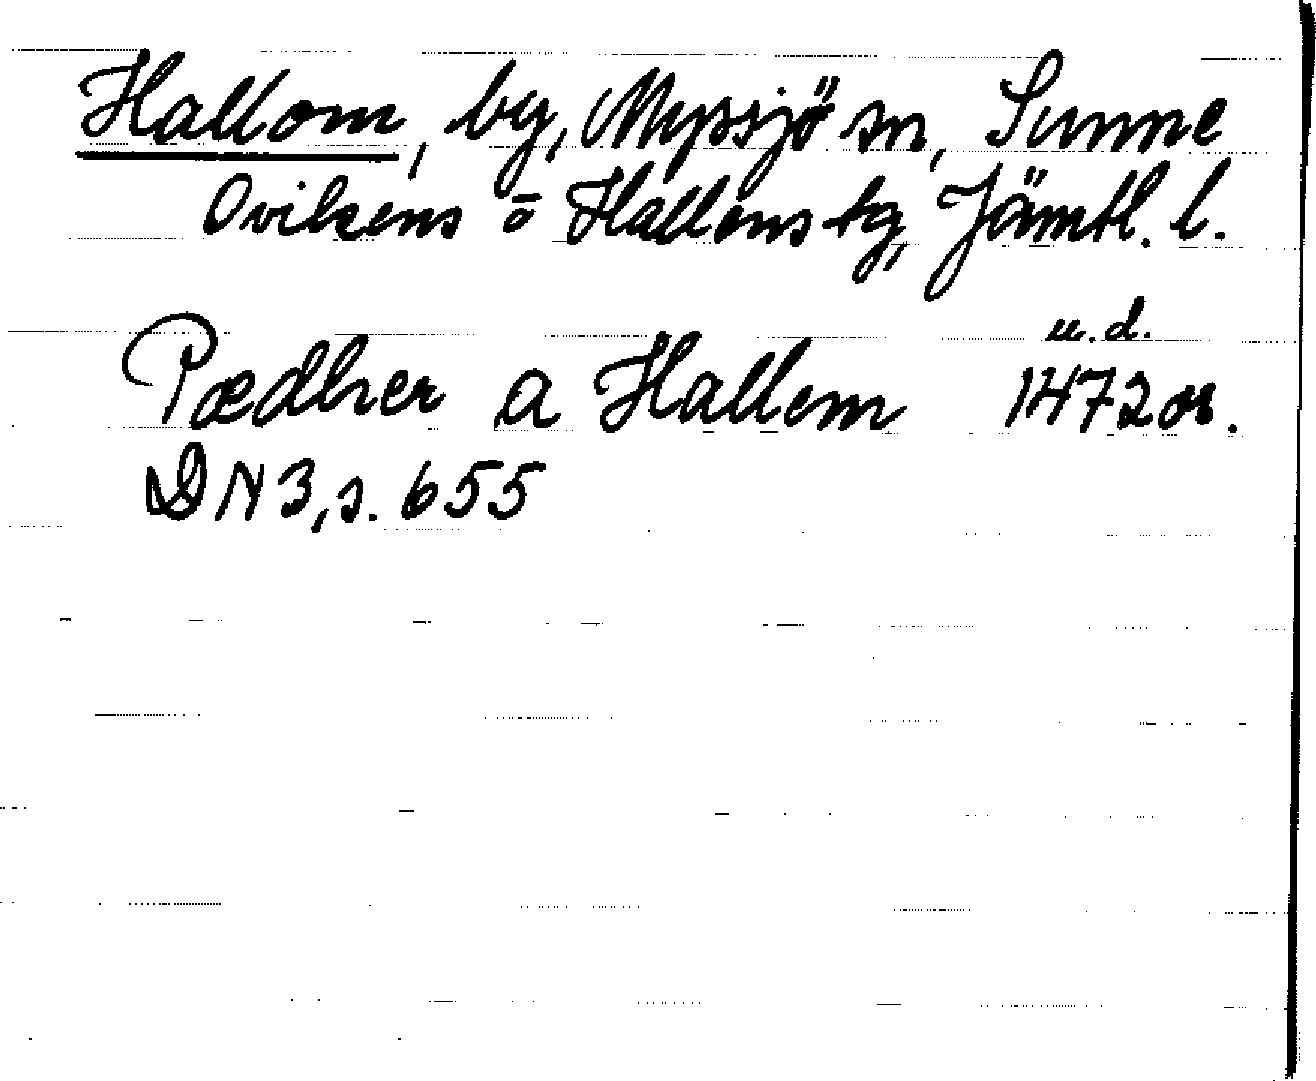 Hallom, by, Myssjö sn, Sunne
Ovikens o Hallens tg, Jämtl. l.
u.d.
Pædher a Hallem 1472 or.
DN 3, s. 655